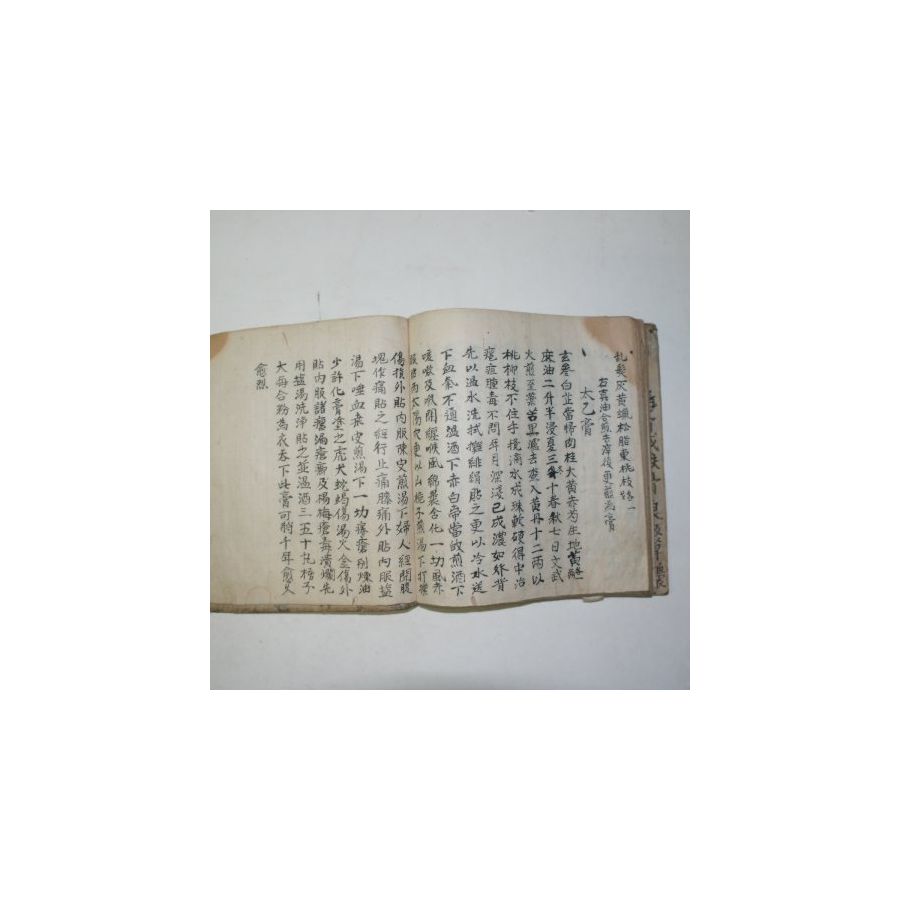 乱髮灰黃蠟松脂東桃枝 一
右 油合煎去滓後更煎爲膏
太乙膏
玄參白芷當歸肉桂大黃赤芍生地黃
麻油二升半浸夏三 十春秋七日文武
火煎至藥 黑濾去查入黃丹十二兩以
桃柳枝不住手攪滴水成珠軟硬得中治
癰疽腫毒不問年月深淺已成濃如 背
先以溫水洗拭攤緋絹貼之更以冷水送
下血氣不通溫酒下赤白帶當 煎酒下
咳嗽及喉閉纏喉風綿裹含化一切風赤
眼貼兩太陽穴更以山梔子煎湯下打撲
傷損外貼內服陳皮煎湯下婦人經閉腹
塊作痛貼之經行止痛膝痛外貼內服塩
湯下唾血桑皮煎湯下一切 瘡別煉油
少許化膏塗之虎犬蛇蝎傷湯火金傷外
貼內服諸瘡漏瘡癤及楊梅瘡毒潰爛先
用塩湯洗淨貼之並溫酒三五十丸梧子
大每合粉爲衣吞下此膏可 千年愈久
愈烈